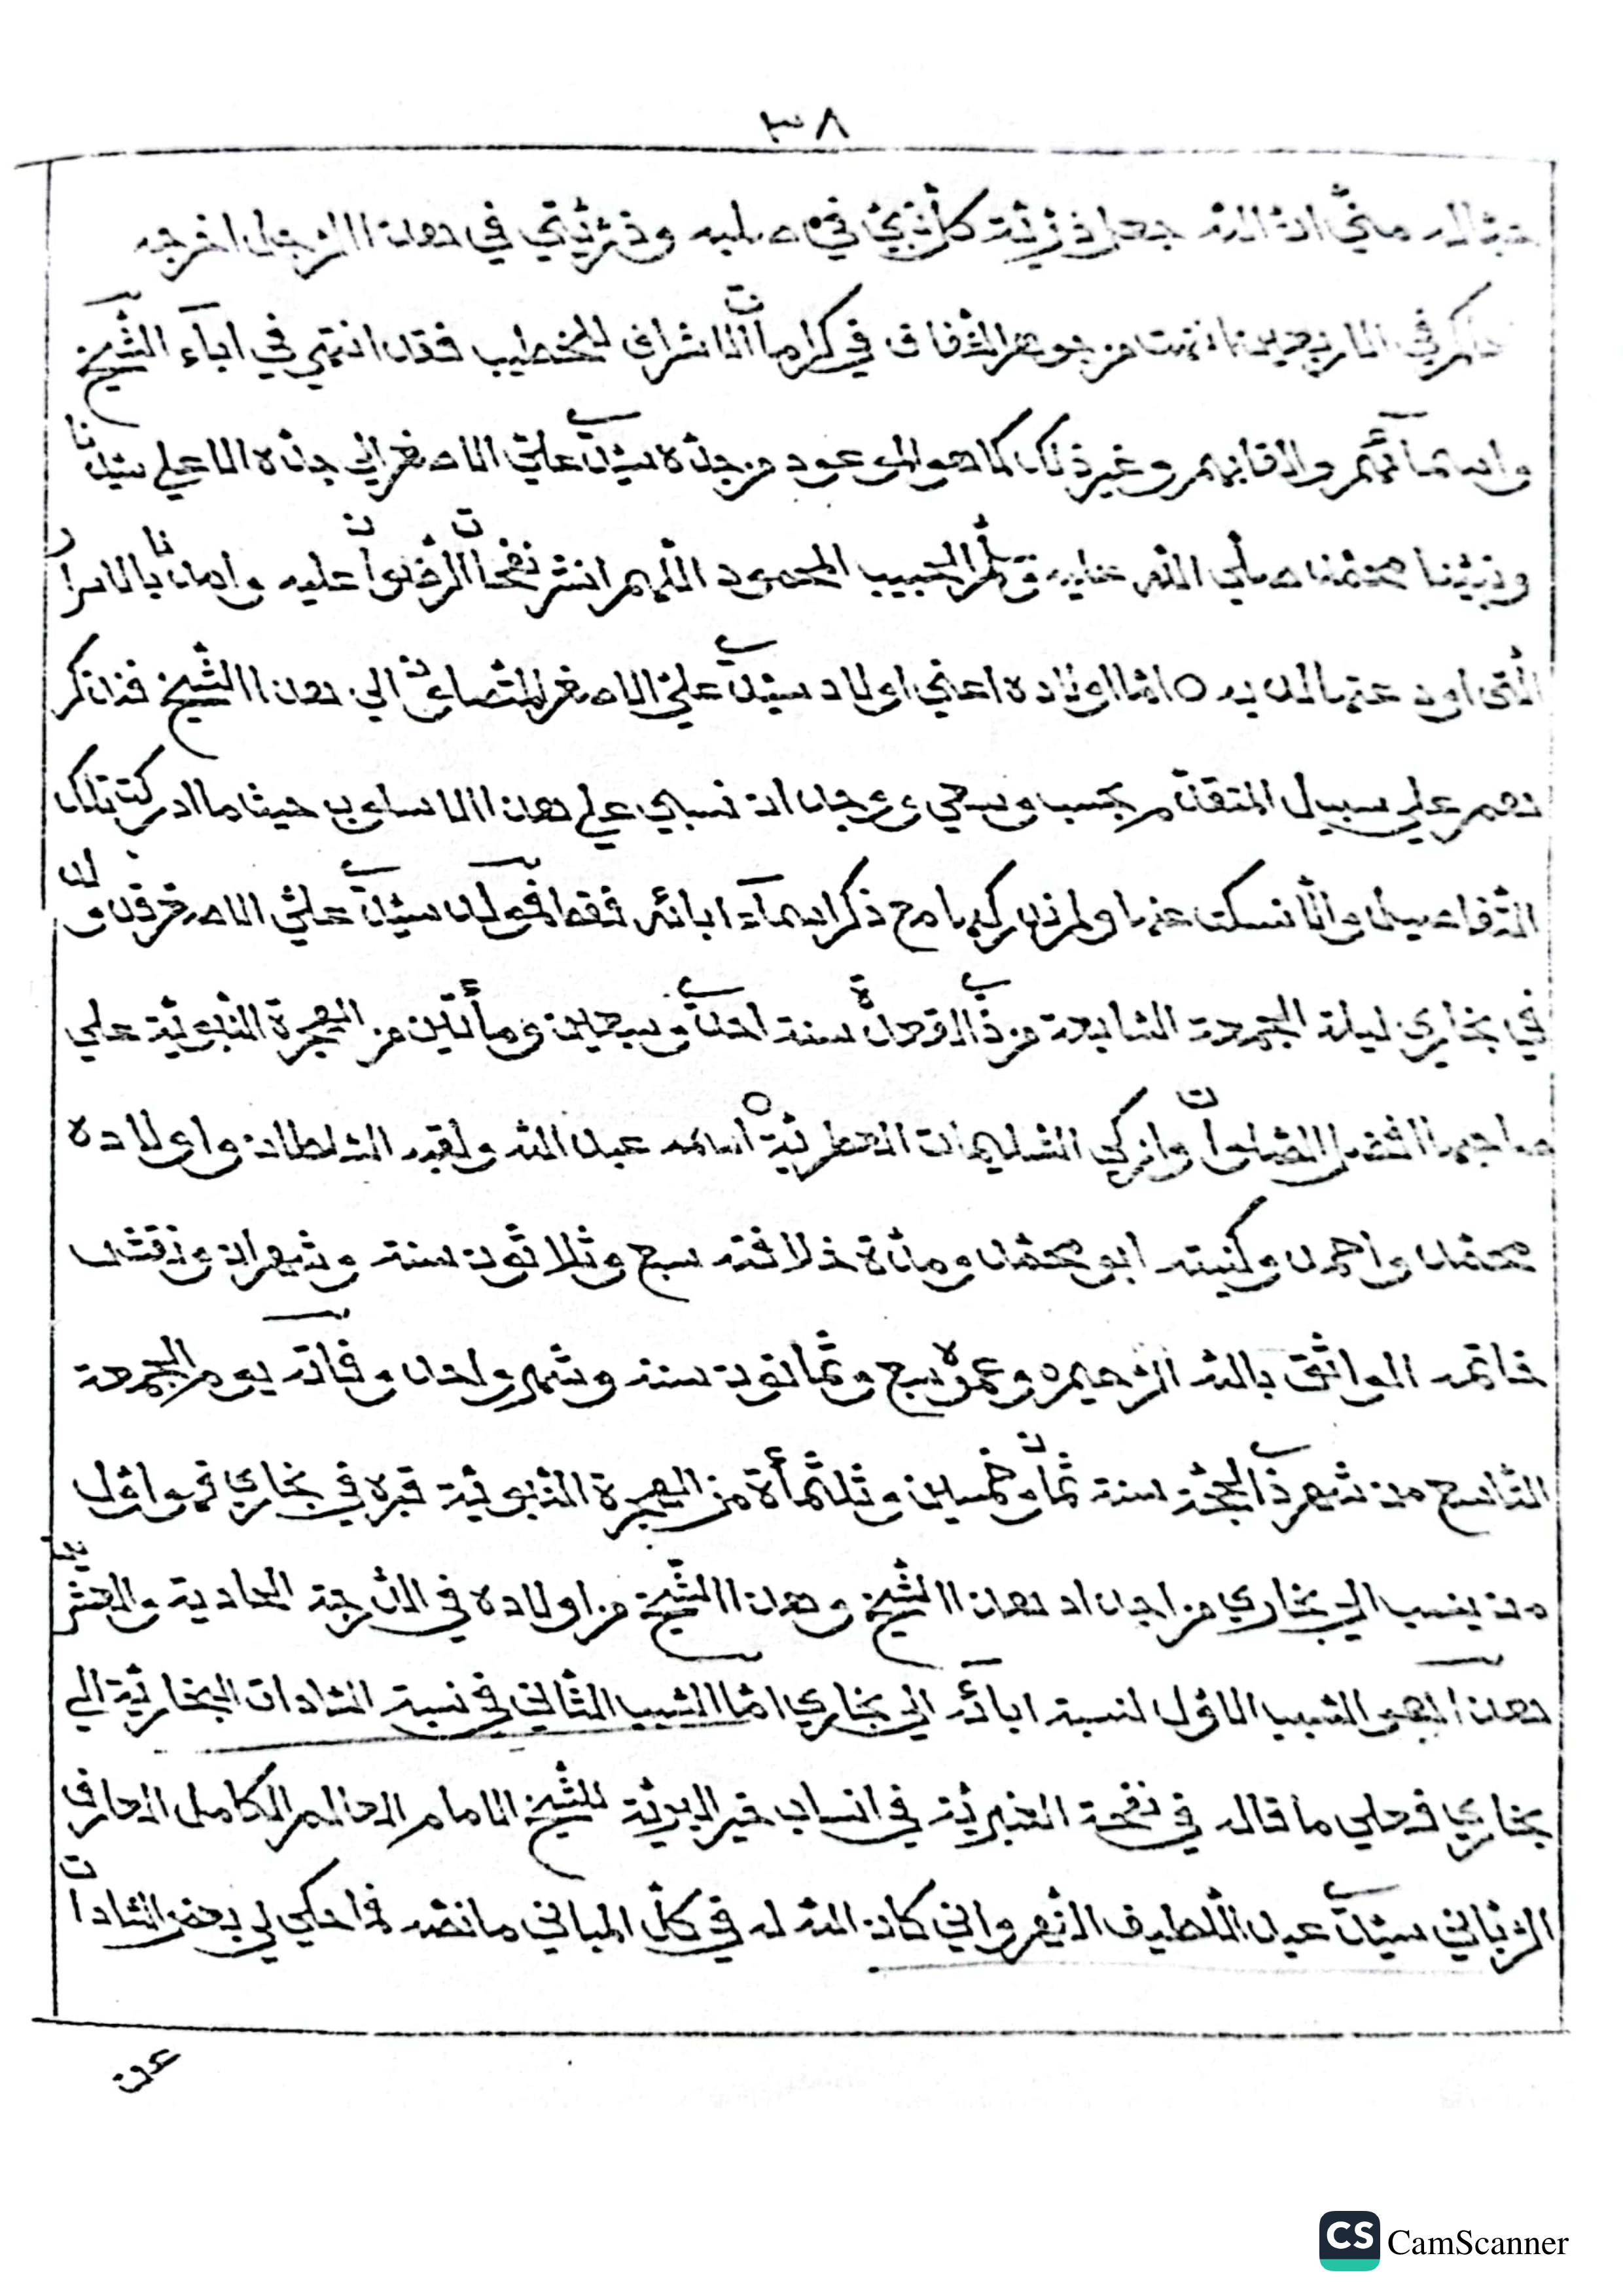 ٣٨
منّي انّ اللّه جعل ذرّيّة كلّ نبيّ في صلبه وذرّيّتي في هذا الرّجل اخرجه
في الاربعين انتهت من جوهر الشّفاف في كرامات الاشراف للخطيب فقد انتهي في اباۤء الشّيخ
واسماۤئهم والقابهم وغير ذلك كما هو الموعود من جدّه سيّدي عليّ الاصغر الي جدّه الاعلي سيّدنا
ونبيّنا محمّد صلّي اللّه عليه وسلّم الحبيب المحمود اللّهم انشر نفحات الرّضوان عليه وامدنا بالاسرار
الّتي اودعتها لديه ٥ امّا اولاده اعني اولاد سيّدي عليّ الاصغر المتصاعدة الي هذا الشّيخ فنذكر
هم علي سبيل المتقدّم بحسب وسعي ووجدان نسبي علي هذا الاسلوب حيثما ادركت تلك
التّفاصيل والّا نسكت عنها ولم نذكرها مع ذكر اسماۤء ابائه فقط فمولد سيّدي عليّ الاصغر قدّ له
في بخاري ليلة الجمعة السّابعة من ذي القعدة سنة احدي وسبعين ومأتين من الهجرة النّبويّة علي
صاحبها افضل الصّلوات وازكي التّسليمات العطريّة ٥ اسمه عبد اللّه ولقبه السّلطان واولاده
محمّد واحمد وكنيته ابو محمّد ومدّة خلافته سبع وثلاثون سنة وشهران ونقش
خاتمه الواثق باللّه الرّحيم وعمره سبع وثمانون سنة وشهر واحد وفاته يوم الجمعة
التّاسع من شهر ذي الحجّة سنة ثمان وخمسين وثلثمأة من الهجرة النّبويّة قبره في بخاري فهو اوّل
من ينسب الي بخاري من اجداد هذا الشّيخ وهذا الشّيخ من اولاده في الدّرجة الحادية والعشرين
هذا هو السّبب الاوّل لنسبة اباۤئه الي بخاري امّا السّبب الثّاني في نسبة السّادات البخاريّة الي
بخاري فعلي ما قاله في نفحة العنبريّة في انساب خير البريّة للشّيخ الامام العالم الكامل العارف
الرّبّاني سيّدي عبد اللّطيف النّهرواني كان اللّه له في كلّ المباني ما نصّه فما حكي لي بعض السّادات
عن
CS CamScanner